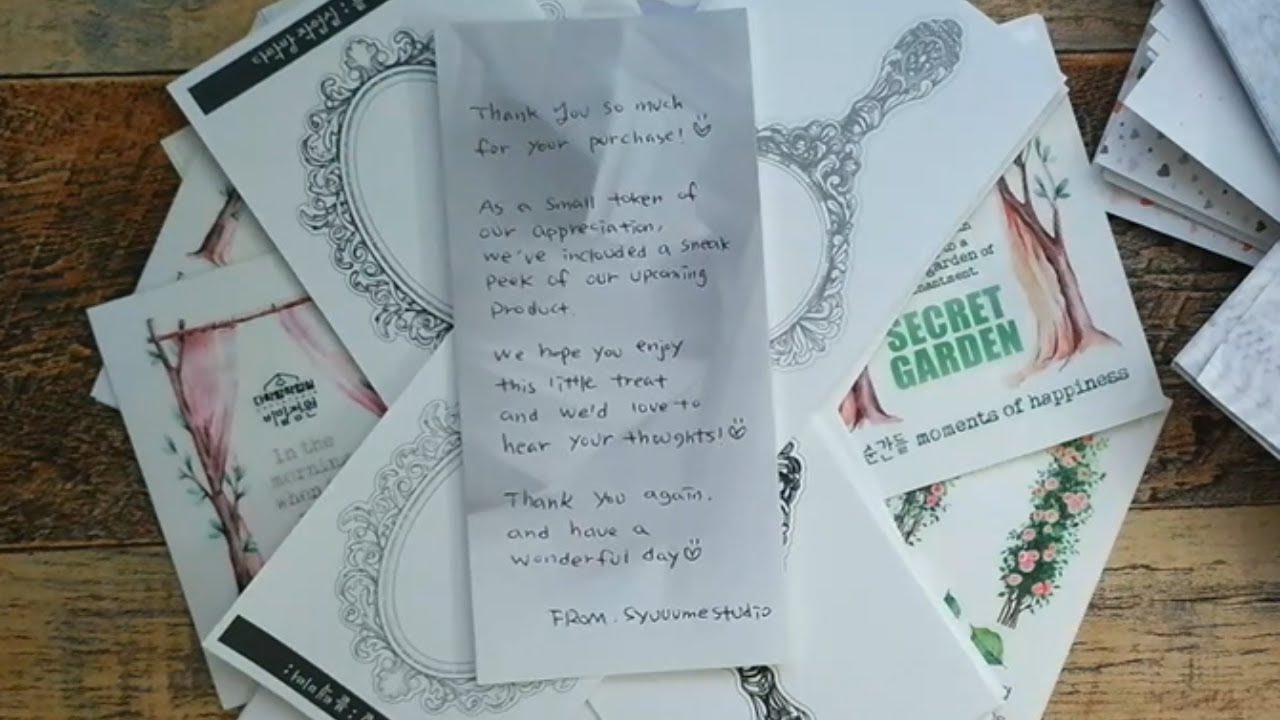 Thank you so much
for your purchase!
As a small token of
our appreciation,
we've included a sneak
peek of our upcoming
product.
We hope you enjoy
this little treat
and we'd love to
hear your thoughts!
Thank you again,
and have a
wonderful day
FROM. syuuumestudio
다락방작업실
비밀정원
in the
morning
when
to a
garden of
SECRET
GARDEN
순간들 moments of happiness
다락방 작업실 :